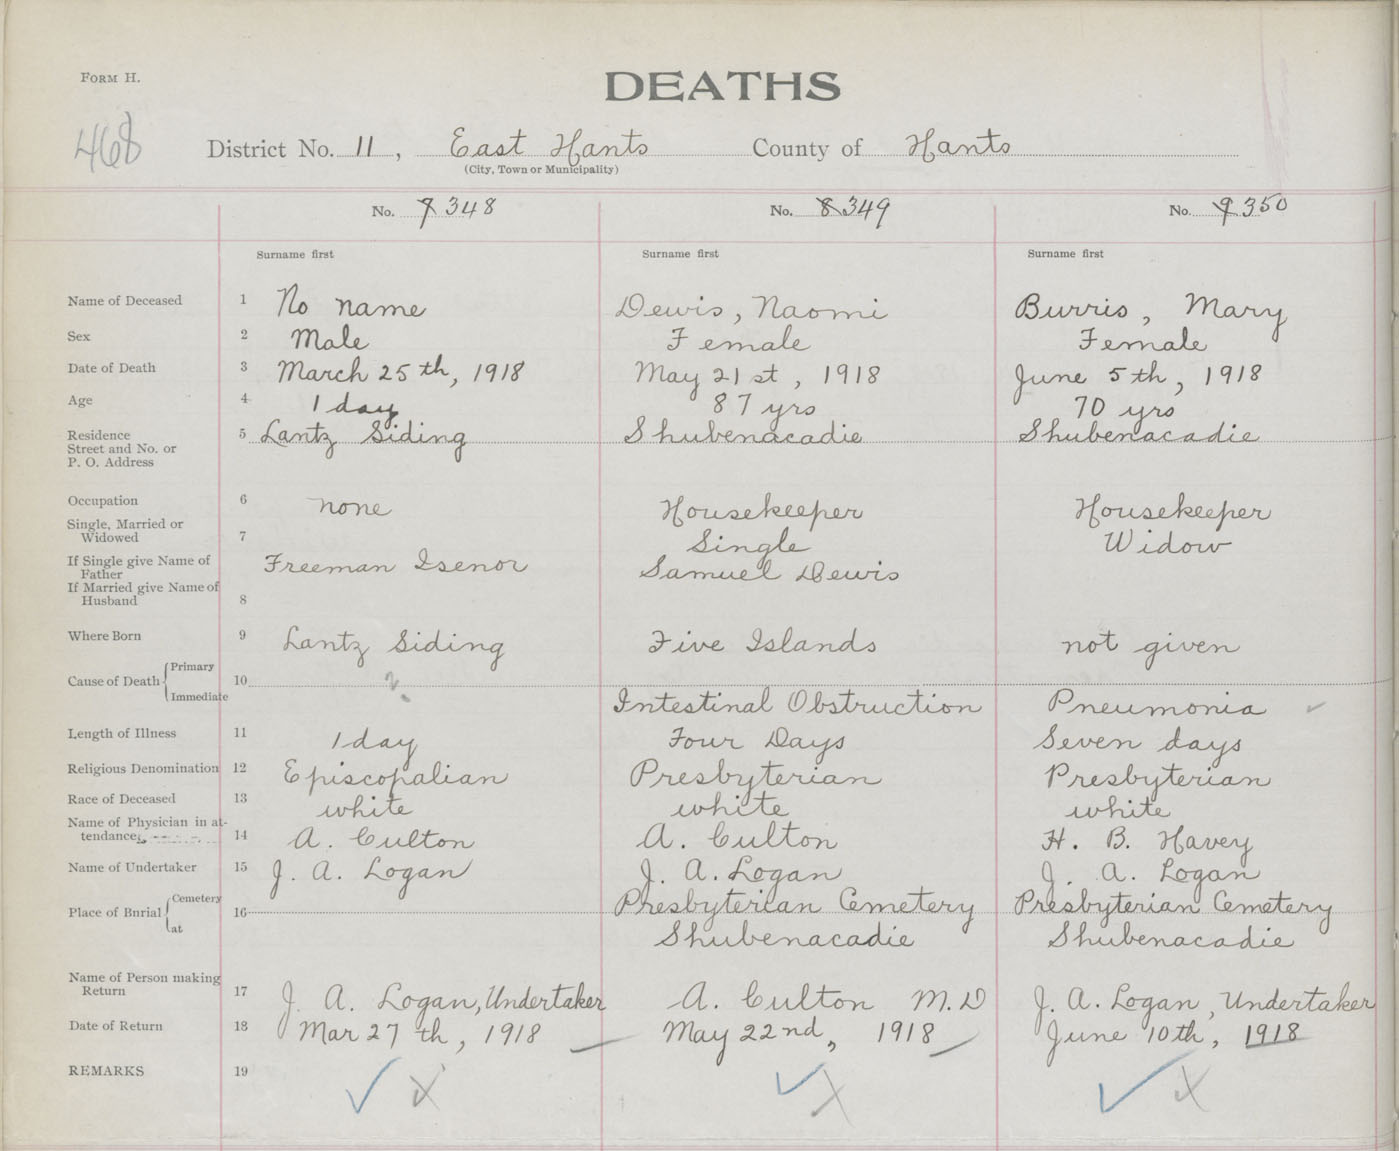 FORM H.
DEATHS
468
District No. 11, East Hants County of Hants
(City, Town or Municipality)
No. 7 348 No. 8 349 No. 9 350
Surname first Surname first Surname first
Name of Deceased 1 No name Dewis, Naomi Burris, Mary
Sex 2 Male Female Female
Date of Death 3 March 25th, 1918 May 21st, 1918 June 5th, 1918
Age 4 1 day 87 yrs 70 yrs
Residence 5 Lantz Siding Shubenacadie Shubenacadie
Street and No. or
P. O. Address
Occupation 6 none Housekeeper Housekeeper
Single, Married or
Widowed 7 Single Widow
If Single give Name of
Father Freeman Isenor Samuel Dewis
If Married give Name of
Husband 8
Where Born 9 Lantz Siding Five Islands not given
Primary
Cause of Death 10 ?
Immediate Intestinal Obstruction Pneumonia
Length of Illness 11 1 day Four Days Seven days
Religious Denomination 12 Episcopalian Presbyterian Presbyterian
Race of Deceased 13 white white white
Name of Physician in at-
tendance 14 A. Culton A. Culton H. B. Havey
Name of Undertaker 15 J. A. Logan J. A. Logan J. A. Logan
Cemetery Presbyterian Cemetery Presbyterian Cemetery
Place of Bnrial 16
at Shubenacadie Shubenacadie
Name of Person making
Return 17 J. A. Logan, Undertaker A. Culton M.D J. A. Logan, Undertaker
Date of Return 18 Mar 27th, 1918 May 22nd, 1918 June 10th, 1918
REMARKS 19